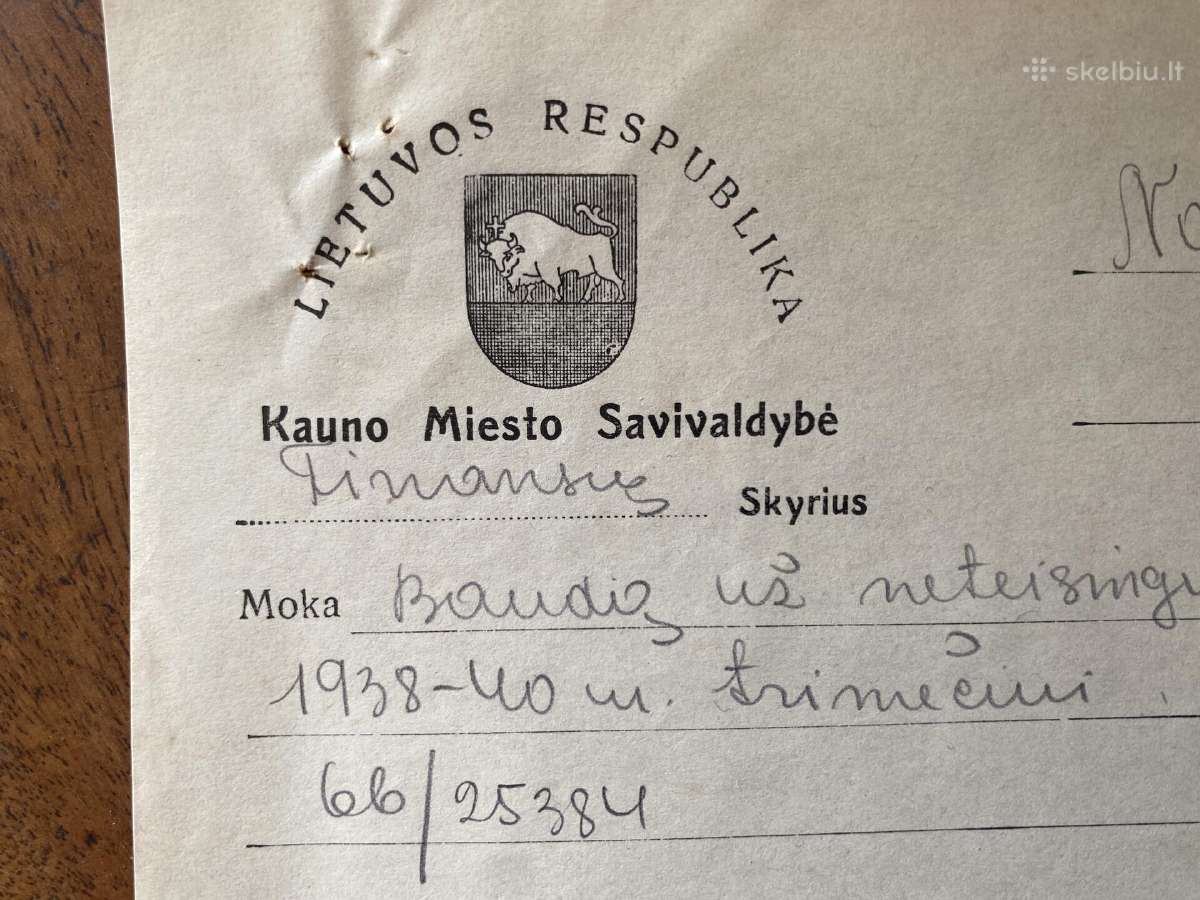 skelbiu.lt
LIETUVOS RESPUBLIKA
No
Kauno Miesto Savivaldybė
Finansų Skyrius
Moka Baudą už neteisingu
1938-40 m. trimečiui
66/25384